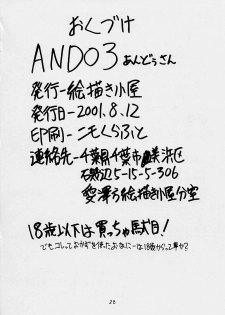 おくづけ
ANDO3 あんどぅさん
発行－絵描き小屋
発行日－2001.8.12
印刷－ニモくらぶと
連絡先－千葉県千葉市美浜区
5-15-5-306
愛澤方絵描き小屋分室
18歳以下は買っちゃ駄目!
でもコレっておかずを使ったおなにーは18歳からって事か?
26